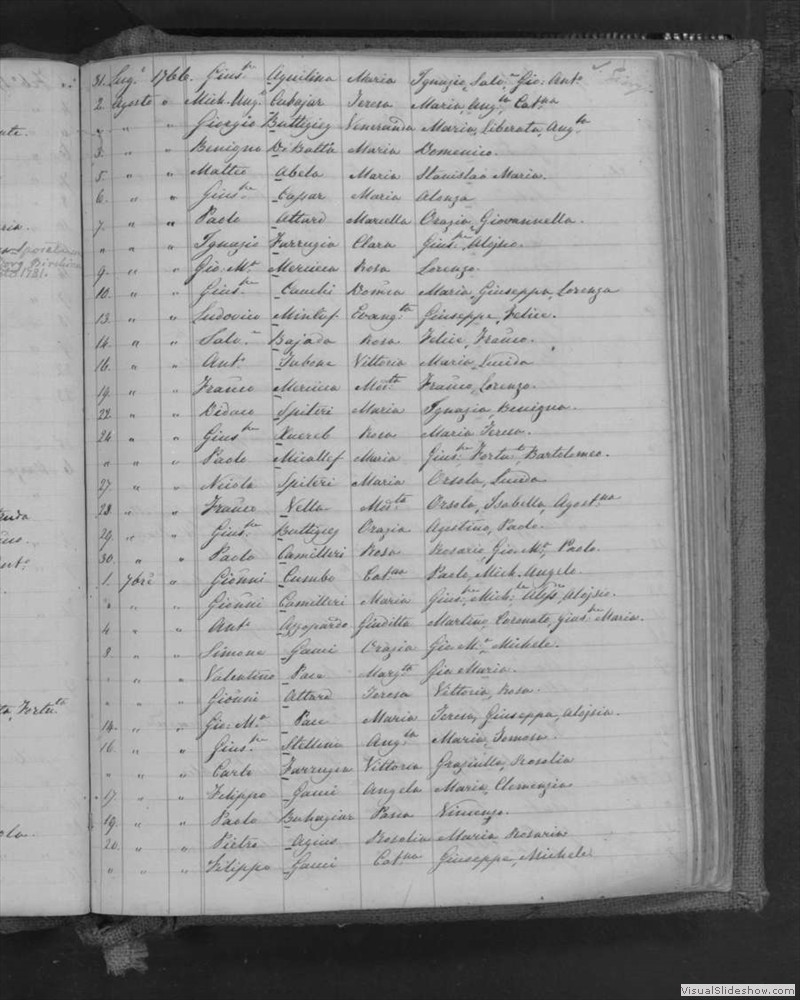 31. Lug.º 1766. Gius.ᵖᵉ Aquilina Maria Ignazio, Salv.ʳᵉ Gio: Ant.º
2. Agosto " Mich. Ang.º Cubajar Teresa Maria, Ang.ᵗᵃ Cat.ⁿᵃ
" " " Giorgio Buttigieg Veneranda Maria, Liberata, Ang.ᵗᵃ
3. " " Benigno DiBatta Maria Domenico.
5. " " Matteo Abela Maria Stanislao Maria.
6. " " Gius.ᵖᵉ Caspar Maria
7. " " Paolo Attard Marcella Orazia, Giovannella.
" " " Ignazio Farrugia Clara Gius.ᵖᵉ Alojsio.
9. " " Gio. M.ª Mercieca Rosa Lorenzo.
10. " " Gius.ᵖᵉ Camilli Domca Maria, Giuseppa, Lorenza
13. " " Ludovico Mintuf Evang.ᵗᵃ Giuseppe, Felice.
14. " " Salv.ʳᵉ Bajada Rosa Felice, Franco.
16. " " Ant.º Tabone Vittoria Maria,
19. " " Franco Mercieca Mod.ᵗᵃ Franco, Lorenzo.
22. " " Didaco Spiteri Maria Ignazia, Benigna.
24. " " Gius.ᵖᵉ Xuereb Rosa Maria Teresa.
" " " Paolo Micallef Maria Gius.ᵖᵉ Fortu.ᵗᵒ Bartolomeo.
27. " " Nicola Spiteri Maria Orsola,
28. " " Franco Vella Mod.ᵗᵃ Orsola, Isabella, Agost.ⁿᵃ
29. " " Gius.ᵖᵉ Buttigieg Orazia Agostino, Paolo.
30. " " Paolo Camilleri Rosa Rosario, Gio. M.ª, Paolo.
1. 7bre " Gionni Cusubo Cat.ⁿᵃ Paolo, Mich. Angelo.
" " " Gionni Camilleri Maria Gius.ᵖᵉ Mich.ˡᵉ Alojsio.
4 " " Ant.º Azzopardo Giuditta Martino, Coronato, Gius.ᵖᵉ Maria.
8. " " Simone Gauci Orazia Gio. M.ª, Michele.
" " " Valentino Pace Marg.ᵗᵃ Gio Maria.
" " " Gionni Attard Teresa Vittoria, Rosa.
14. " " Gio. M.ª Pace Maria Teresa, Giuseppa, Alojsia.
16. " " Gius.ᵖᵉ Stellina Ang.ᵗᵃ Maria,
" " " Carlo Farrugia Vittoria Graziulla, Rosolia
17. " " Filippo Gauci Angela Maria, Clemenzia
19. " " Paolo Buhagiar Pasca Vincenzo.
20. " " Pietro Agius Rosolia Maria Rosaria
" " " Filippo Gauci Cat.ⁿᵃ Giuseppe, Michele.
VisualSlideshow.com